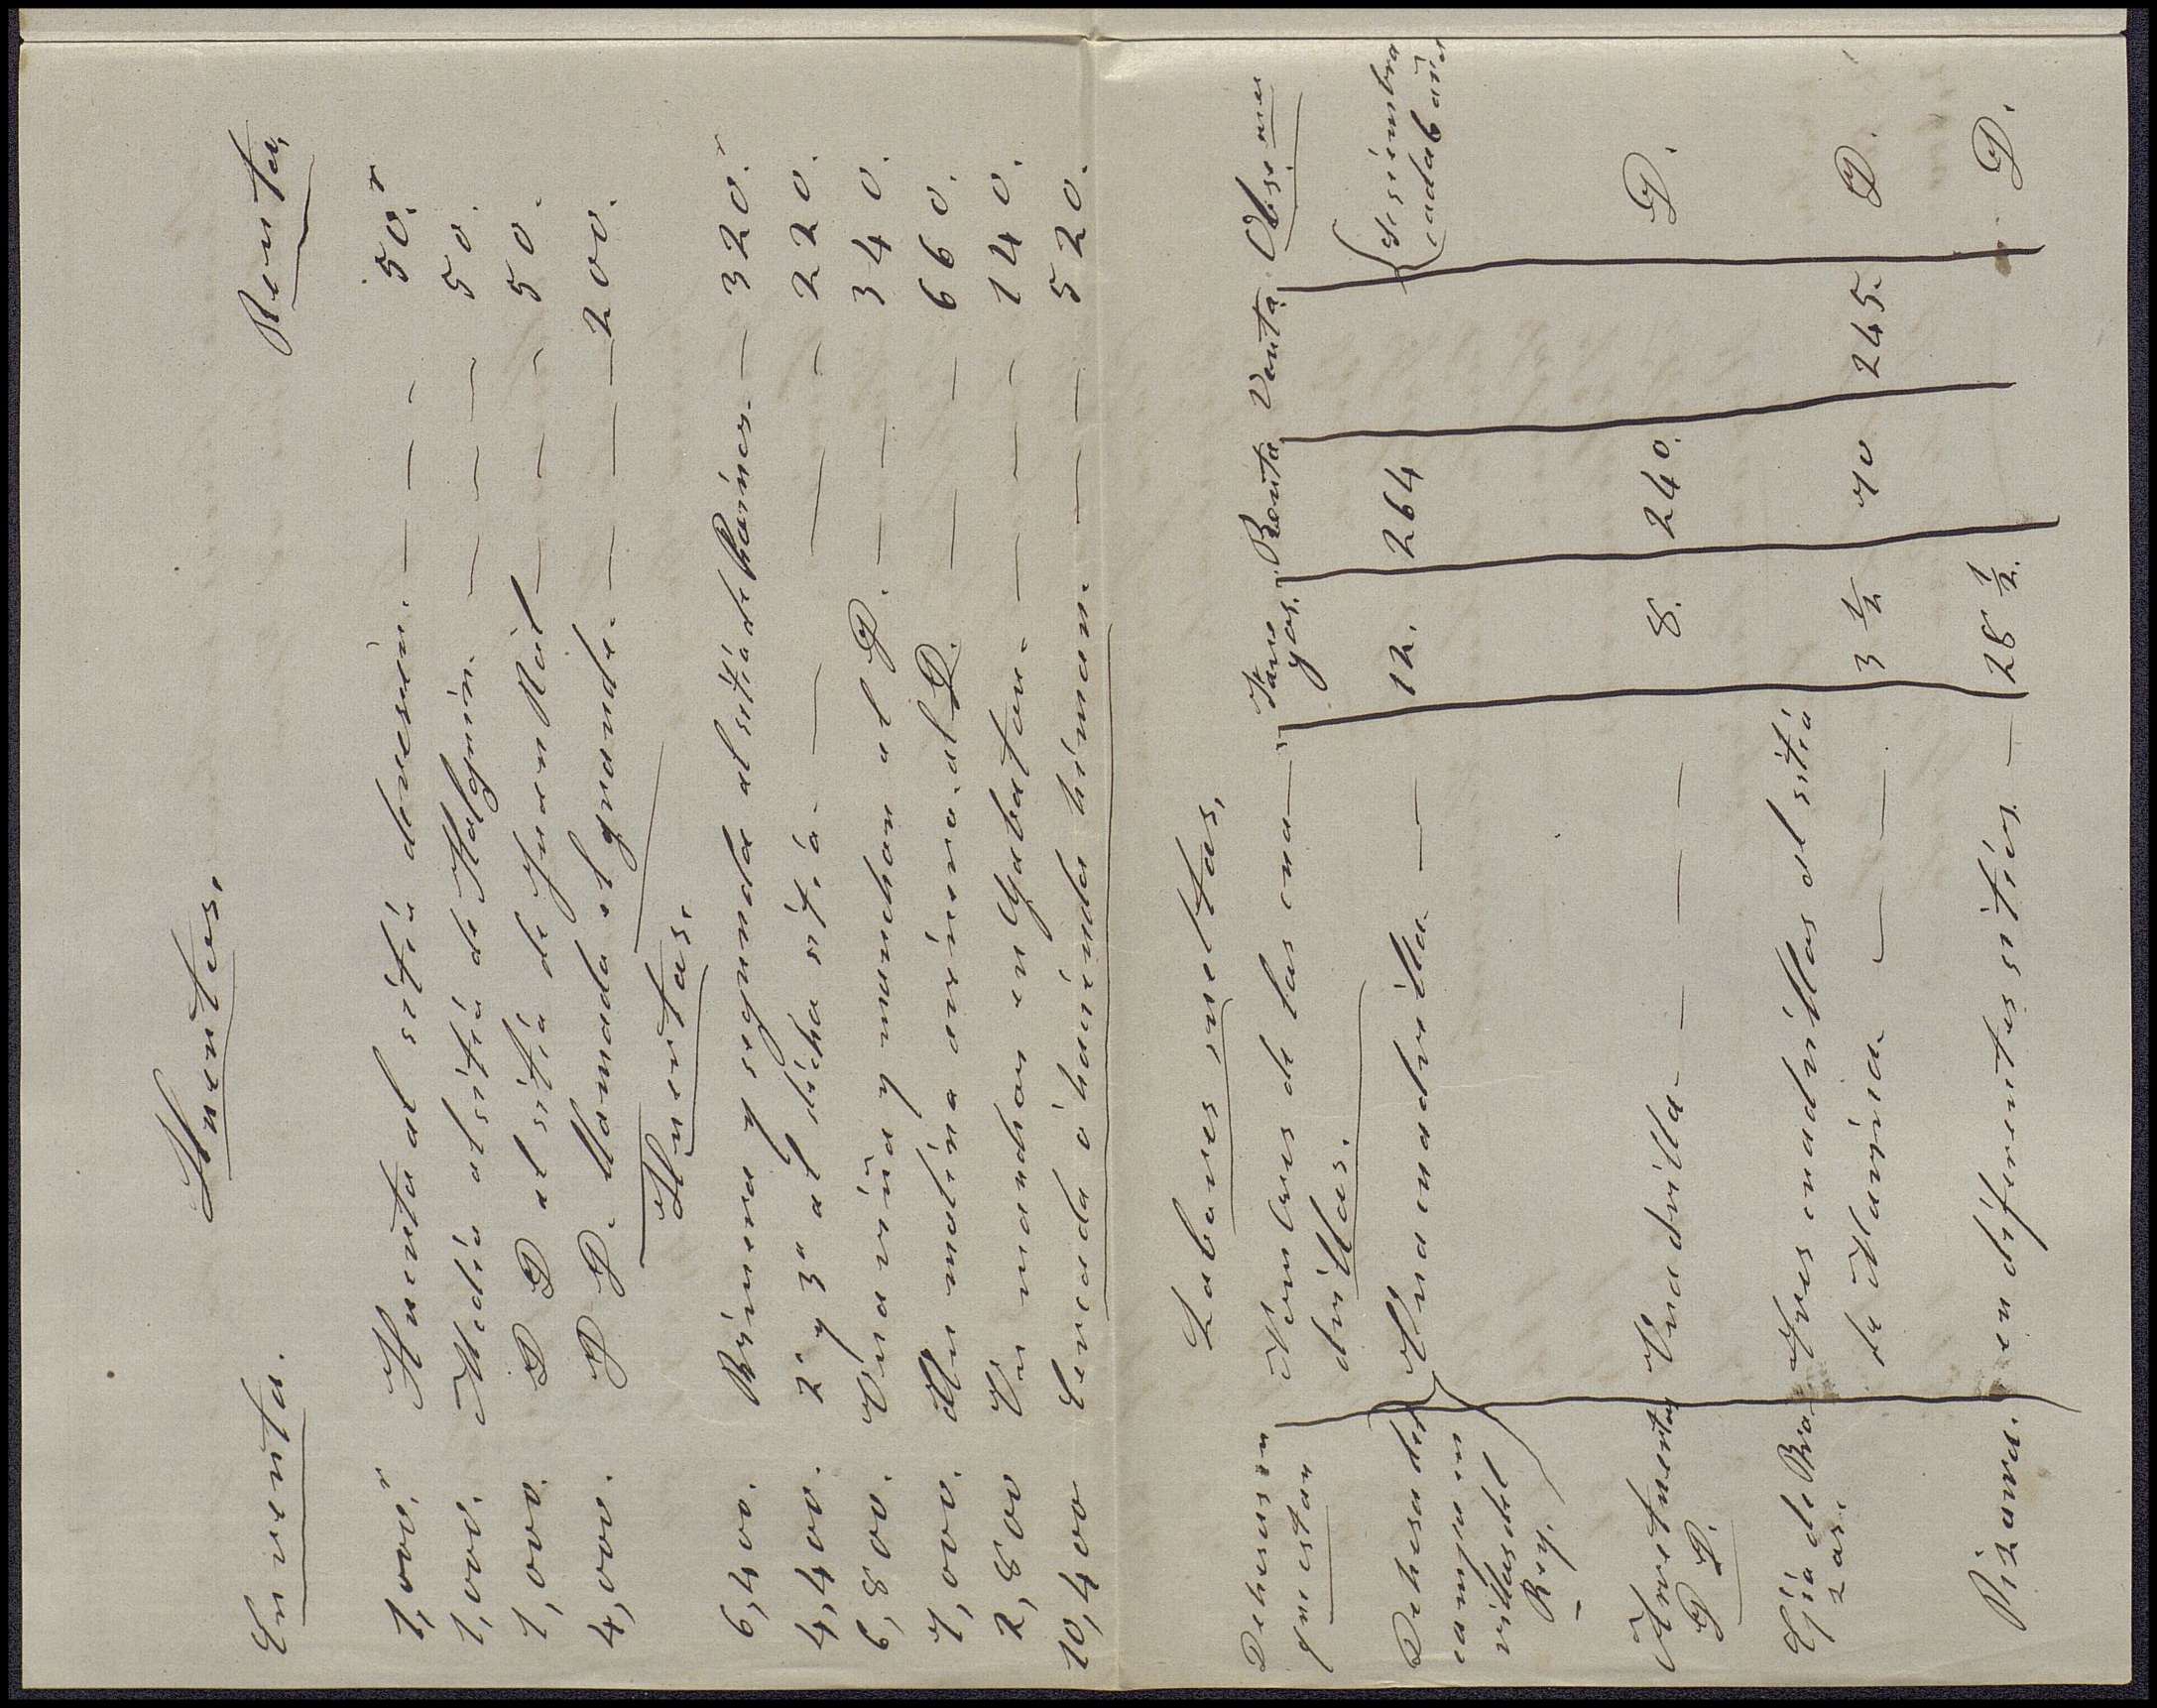 Huertos.
En venta. Renta,
1,000.r Huerto al sitio de - - - 50.r
1,000. Medio al sitio de Holguin. - - - 50.
1,000. D D al sitio de Juan Ruil - - - 50.
4,000. D D. llamado el grande. - - - 200.
Huertas.
6,400. Primera y segunda al sitio de Marinos. - 320.r
4,400. 2ª y 3ª al dicho sitio. - - - 220.
6,800. Una viña y manchon al D. - - - 340.
7,000. Un molino arinero. al D. - - 660.
2,800 Un manchon en - - - 140.
10,400 Cercado ó hacienda - - 520.
Labores sueltas,
Dehesas en que estan Nombres de las cuadrillas. Fanegas. Renta Venta. Obse.nes
Dehesa del campo en villas del Rey. Una cuadrilla - 12. 264 Se siembra cada 6 años
D D. Una cuadrilla - - - 8. 240. D.
de Bra- Tres cuadrillas al sitio
zos. de Marina - - 3 1/2 70 245. D.
Pizarra. en diferentes sitios. - 28 1/2. D.